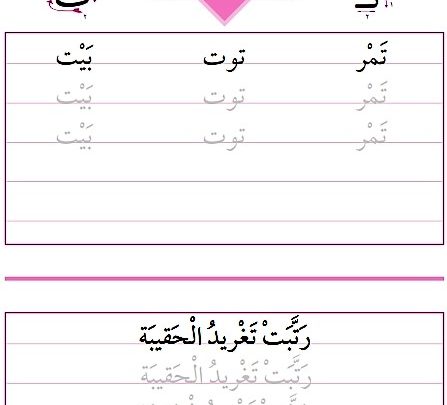 تَمْر توت بَيْت
تَمْر توت بَيْت
تَمْر توت بَيْت
رَتَّبَتْ تَغْريدُ الْحَقيبَة
رَتَّبَتْ تَغْريدُ الْحَقيبَة